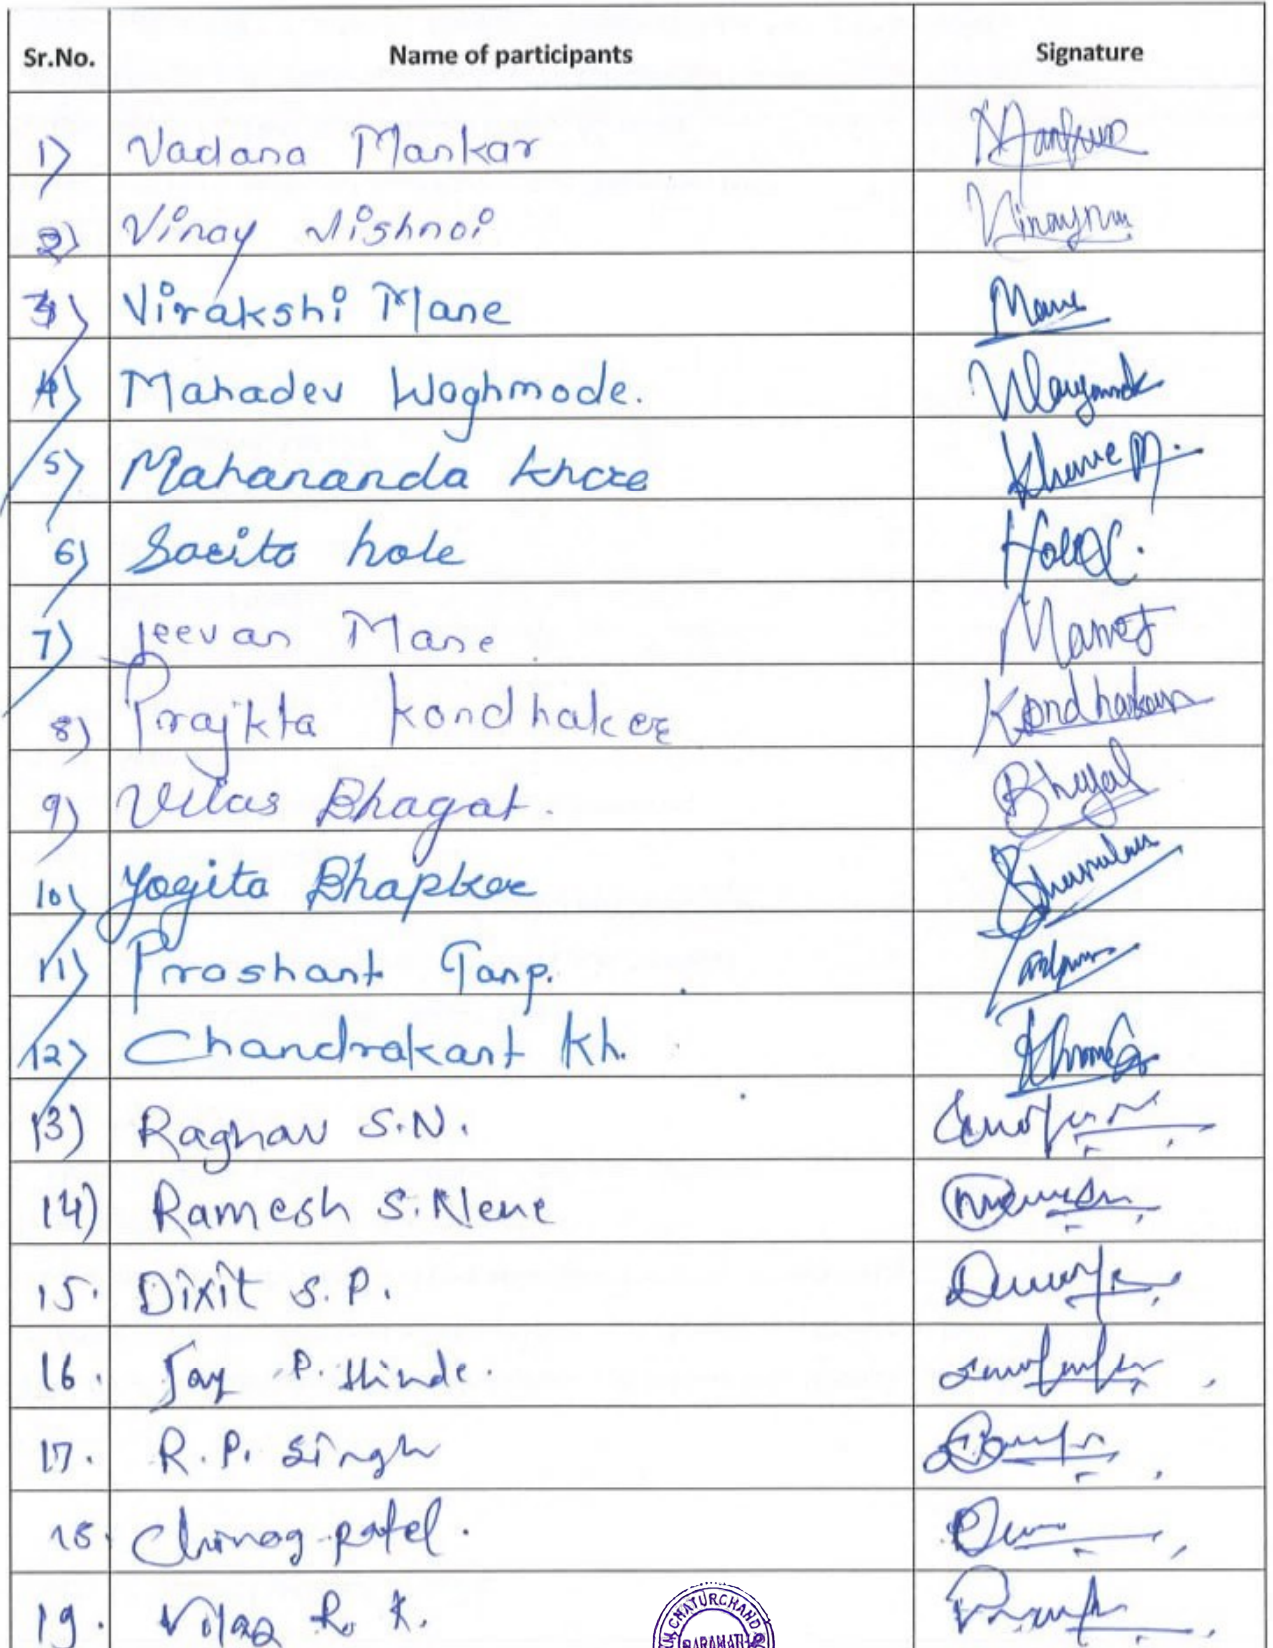 Sr.No. Name of participants Signature
1) Vadana Mankar Mankar
2) Vinay Vishnoi
3) Virakshi Mane Mane
4) Mahadev Waghmode.
5) Mahananda Khore
6) Sarita hole
7) Jeevan Mane
8) Prajkta Kondhaker Kondhakar
9) Vilas Bhagat.
10) Yogita Bhapker
11) Prashant Tanp.
12) Chandrakant Kh.
13) Raghav S.N.
14) Ramesh S. Nene
15. Dixit S.P.
16. Jay P. Hinde.
17. R.P. Singh
18. Chirag patel.
19. Vilas R. K.
CHATURCHAND
BARAMATI